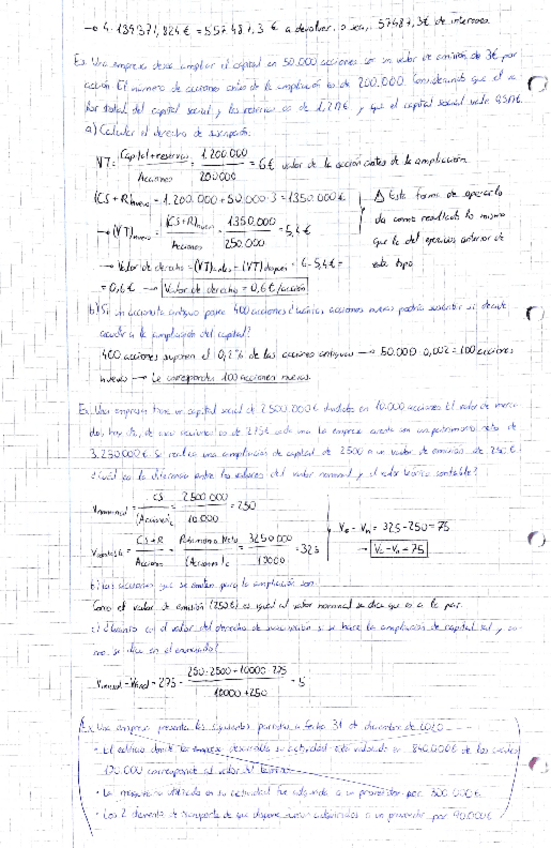 → 4·139371,824 € = 557487,3 € a devolver, o sea, 57487,3€ de intereses
Ex Una empresa desea ampliar el capital en 50.000 acciones con un valor de emisión de 3€ por
acción. El número de acciones antes de la ampliación es de 200.000. Considerando que el va
lor total del capital social y las reservas es de 1,2M€, y que el capital social vale
a) Calcular el derecho de suscripción.
VT = Capital + reservas / Acciones = 1.200.000 / 200.000 = 6€ valor de la acción antes de la ampliación
(CS + R)nuevo = 1.200.000 + 50.000·3 = 1350.000€
△ Esta forma de operarlo
da como resultado lo mismo
que la del ejercicio anterior de
este tipo
→ (VT)nuevo = (CS+R)nuevo / Acciones = 1350.000 / 250.000 = 5,4€
→ Valor de derecho = (VT)antes - (VT)después = 6 - 5,4€ =
= 0,6€ → Valor de derecho = 0,6€/acción
b) Si un accionista antiguo posee 400 acciones ¿cuántas acciones nuevas podría suscribir si decide
acudir a la ampliación del capital?
400 acciones suponen el 0,2% de las acciones antiguas → 50.000·0,002 = 100 acciones
nuevas → Le corresponden 100 acciones nuevas.
Ex Una empresa tiene un capital social de 2500.000€ dividido en 10.000 acciones. El valor de merca
do, hoy día, de esas acciones es de 275€ cada una. La empresa cuenta con un patrimonio neto de
3.250.000€. Se realiza una ampliación de capital de 2500 a un valor de emisión de 250€
¿Cuál es la diferencia entre los valores del valor nominal y el valor teórico contable?
Vnominal = CS / (Acciones)c = 2500.000 / 10.000 = 250
Vc - Vn = 325 - 250 = 75
→ Vc - Vn = 75
Vcontable = CS+R / Acciones = Patrimonio Neto / (Acciones)c = 3250000 / 10000 = 325
b) Las acciones que se emiten para la ampliación son
Como el valor de emisión (250€) es igual al valor nominal se dice que es a la par.
c) ¿Cuánto es el valor del derecho de suscripción si se hace la ampliación de capital tal y co-
mo se dice en el enunciado?
= 275 - 250·2500 + 10000·275 / 10000 + 250 = 5
Ex Una empresa presenta las siguientes partidas a fecha 31 de diciembre de 2020
• El edificio donde la empresa desarrolla su actividad está valorado en 840.000€ de los cuales
120.000 corresponde al valor del terreno.
• La maquinaria utilizada en su actividad fue adquirida a un proveedor por 300.000€.
• Los 2 elementos de transporte de que dispone adquiridos a un proveedor por 90.000€